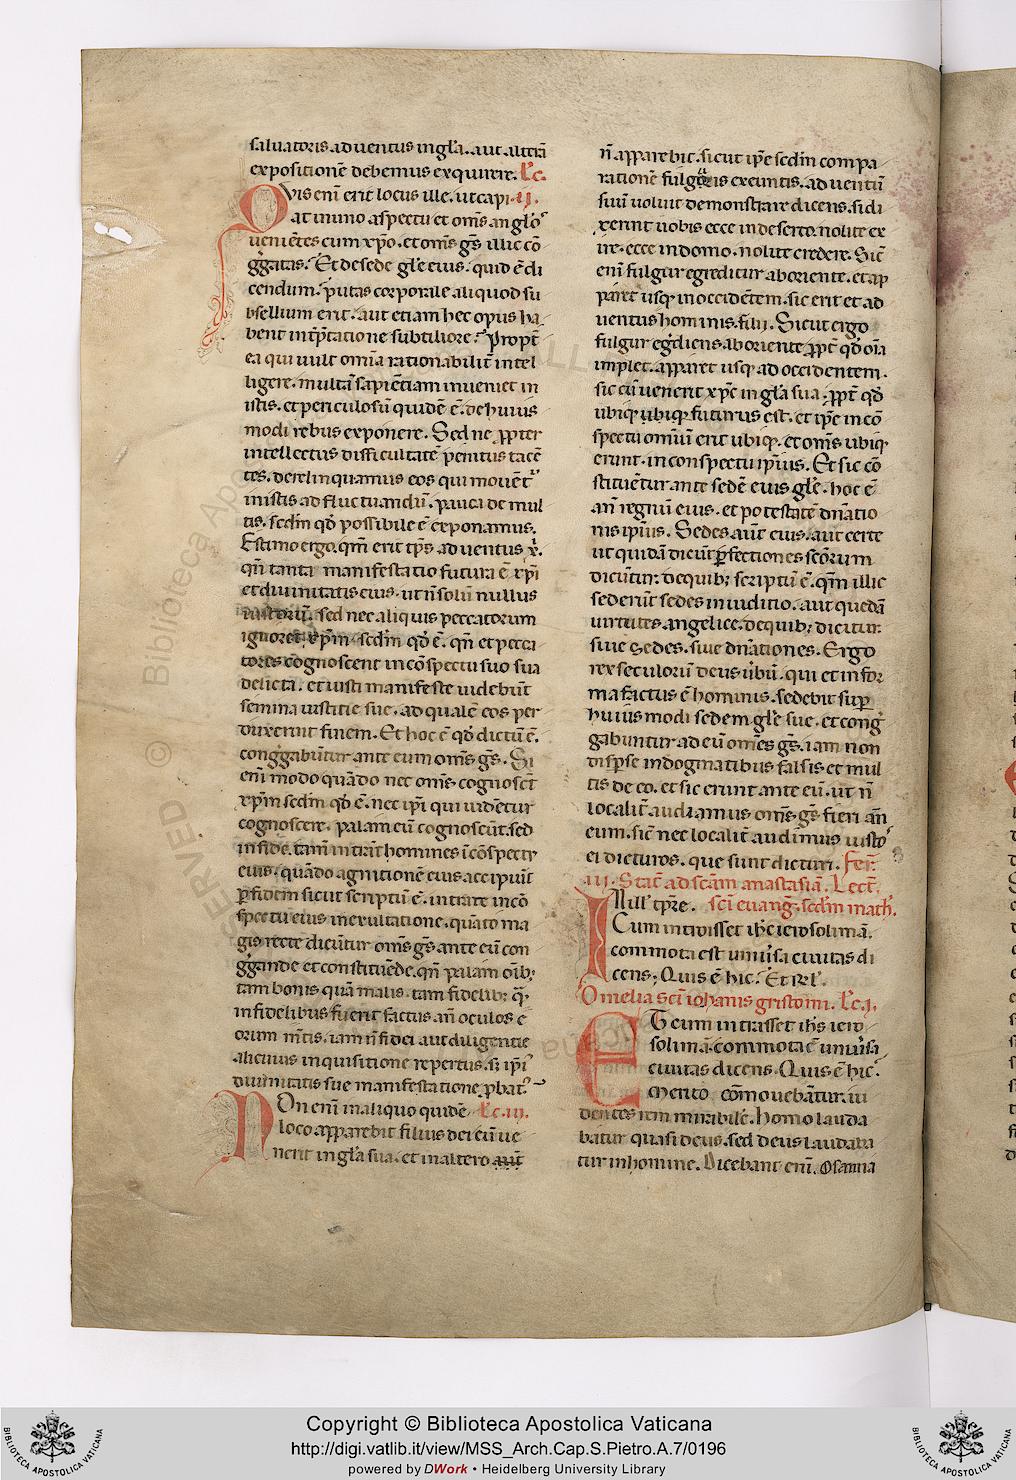 saluatoris aduentus in gl̄a. aut altera
expositionē debemus exquirere. Lc̄.
Qvis enī erit locus ille. ut capi- ii.
at in uno aspectu et om̄s anglo
uenientes cum xp̄o. et om̄s gs̄ illic cō
ḡgatas. Et de sede gl̄e eius. quid ē di
cendum. putas corporale aliquod su
bsellium erit. aut etiam hec opus ha
bent int̄p̄tatione subtiliore. Propt̄
ea qui uult omīa rationabilit̄ intel
ligere. multā sapientiam inueniet in
istis. et periculosū quidē ē. de huius
modi rebus exponere. Sed ne ꝓpter
intellectus difficultatē penitus tacē
tes. derelinquamus eos qui mouēt̄
in istis ad fluctuandū. pauca de mul
tis. scd̄m qd̄ possibile ē exponamus.
Estimo ergo. qm̄ erit tp̄s aduentus x̄.
qn̄ tanta manifestatio futura ē xp̄i
et diuinitatis eius. ut n̄ solū nullus
iustorū. sed nec aliquis peccatorum
ignoret xp̄m. scd̄m qd̄ ē. qn̄ et pecca
tores cognoscent in cōspectu suo sua
delicta. et iusti manifeste uidebūt
semina iustitie sue. ad qualē eos per
duxerint finem. Et hoc ē qd̄ dictū ē.
conḡgabuntur ante eum om̄s gs̄. Si
enī modo quādo nec om̄s cognoscūt
xp̄m scd̄m qd̄ ē. nec ip̄i qui uidentur
cognoscere. palam eū cognoscūt. sed
in fide. tam̄ intrāt homines ī cōspectu
eius. quādo agnitionē eius accipiūt
ꝑ fidem sicut scriptū ē. intrate in cō
spectu eius in exultatione. quāto ma
gis recte dicūtur om̄s gs̄ ante eū con
ḡgande et constituēde. qn̄ palam oīb;
tam bonis quā malis. tam fidelib; q̄
infidelibus fuerit factus an̄ oculos e
orum m̄tis. iam n̄ fidei aut diligentie
alicuius inquisitione repertus. s; ip̄i
diuinitatis sue manifestatione ꝓbat.
Non enī in aliquo quidē Lc̄. iii.
loco apparebit filius dei cū ue
nerit in gl̄a sua. et in altero aut̄
n̄ apparebit. sicut ip̄e scd̄m compa
rationē fulgoris exeuntis. aduentū
suū uoluit demonstrare dicens. si di
xerint uobis ecce in deserto. nolite ex
ire. ecce in domo. nolite credere. Sic̄
enī fulgur egreditur ab oriente. et ap
paret usq; in occidētem. sic erit et ad
uentus hominis filii. Sicut ergo
fulgur egrediens ab oriente ꝓpt̄ qd̄ oīa
implet. apparet usq; ad occidentem.
sic cū uenerit xp̄c in gl̄a sua. ꝓpt̄ qd̄
ubiq; ubiq; futurus est. et ip̄e in cō
spectu omniū erit ubiq;. et om̄s ubiq;
erunt. in conspectu ip̄ius. Et sic cō
stituētur ante sedē eius gl̄e. hoc ē
an̄ regnū eius. et potestatē dn̄atio
nis ip̄ius. Sedes aūt eius. aut certe
ut quidā dicūt ꝑfectiones scōrum
dicūtur. de quib; scriptū ē. qm̄ illic
sederūt sedes in iuditio. aut quedā
uirtutes angelice. de quib; dicitur.
siue sedes. siue dn̄ationes. Ergo
rex seculorū deus ūbū. qui et in for
ma factus ē hominis. sedebit suꝑ
huius modi sedem gl̄e sue. et cong
gabuntur ad eū om̄es gs̄. iam non
disp̄se in dogmatibus falsis et mul
tis de eo. et sic erunt ante eū. ut n̄
localit̄ audiamus om̄s gs̄ fieri an̄
eum. sic̄ nec localit̄ audimus iusto
ei dicturos. que sunt dicturi. Fer̄.
iii. Stac̄ ad sc̄am anastasiā. Lect̄.
In ill' tp̄re. sc̄i euanḡ. scd̄m math.
Cum introisset ih̄c ierosolimā.
commota est uniūsa ciuitas di
cens; Quis ē hic. Et Rl̄.
Omelia sc̄i iohanis grisotomi. Lc̄. i.
Et cum intrasset ih̄s iero
solimā. commota ē uniūsa
ciuitas dicens. Quis ē hic.
E merito cōmouebātur. ui
dentes rem mirabilē. Homo lauda
batur quasi deus. sed deus laudaba
tur in homine. Dicebant enī. Osanna
Copyright © Biblioteca Apostolica Vaticana
http://digi.vatlib.it/view/MSS_Arch.Cap.S.Pietro.A.7/0196
powered by DWork • Heidelberg University Library